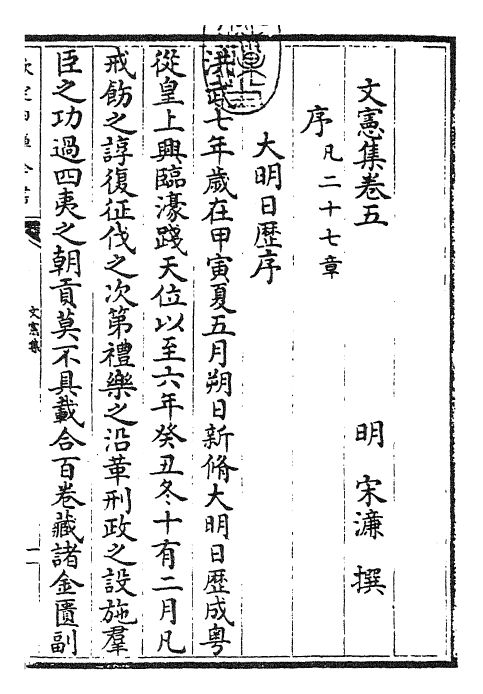 文憲集卷五
明 宋濂 撰
序 凡二十七章
大明日歴序
洪武七年歲在甲寅夏五月朔日新脩大明日歴成粤
從皇上興臨濠踐天位以至六年癸丑冬十有二月凡
戒飭之諄復征伐之次第禮樂之沿革刑政之設施羣
臣之功過四夷之朝貢莫不具載合百卷藏諸金匱副
文憲集
一